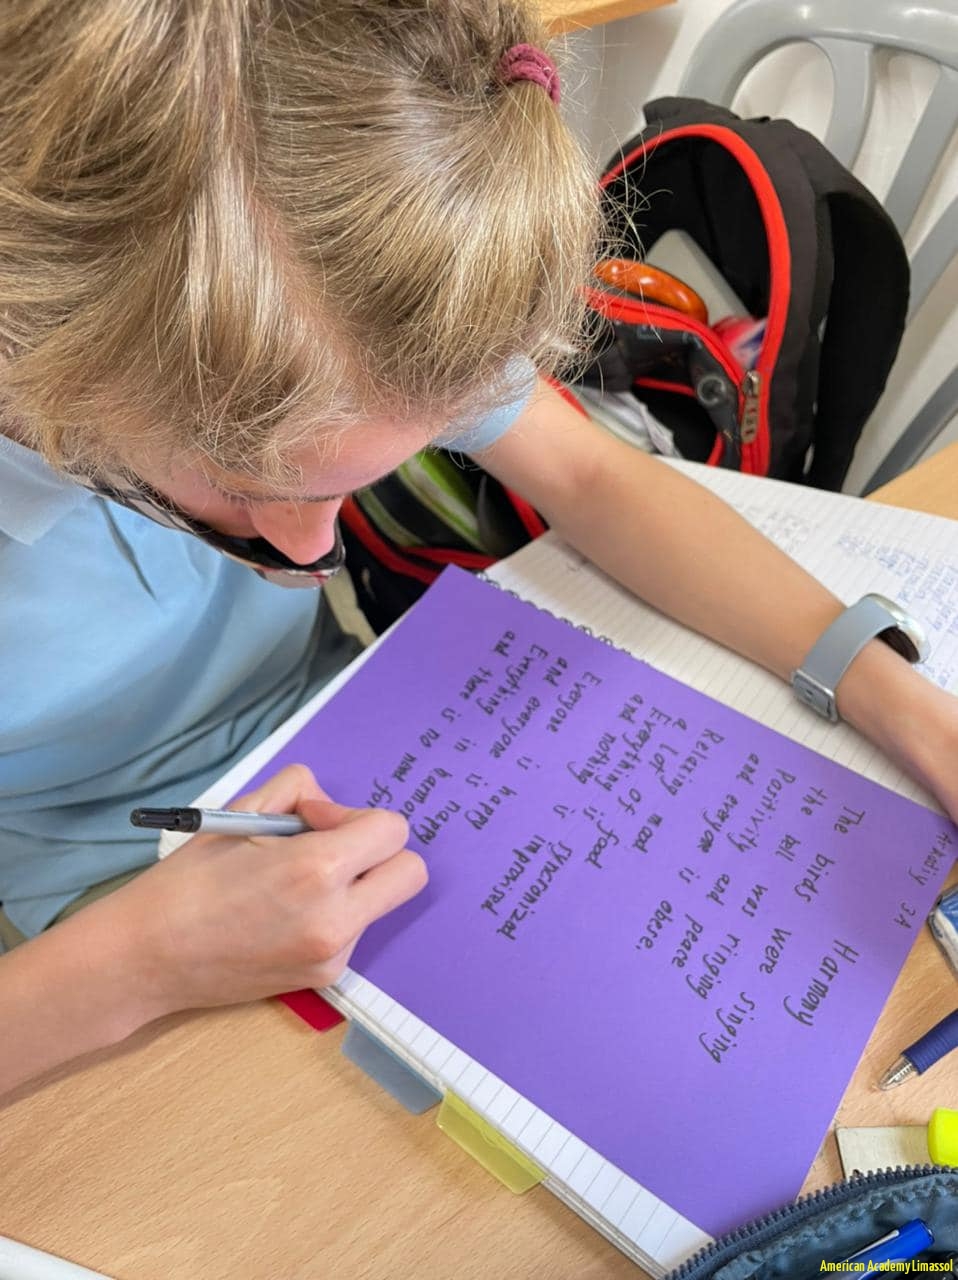 3A
Harmony
The birds were singing
the bell was ringing
Positivity and peace
and everyone is obese.
Relaxing mood
a lot of food
Everything is syncronized
and nothing is improvised
Everyone is happy
and everyone is
Everything in
and there is no need for
American Academy Limassol